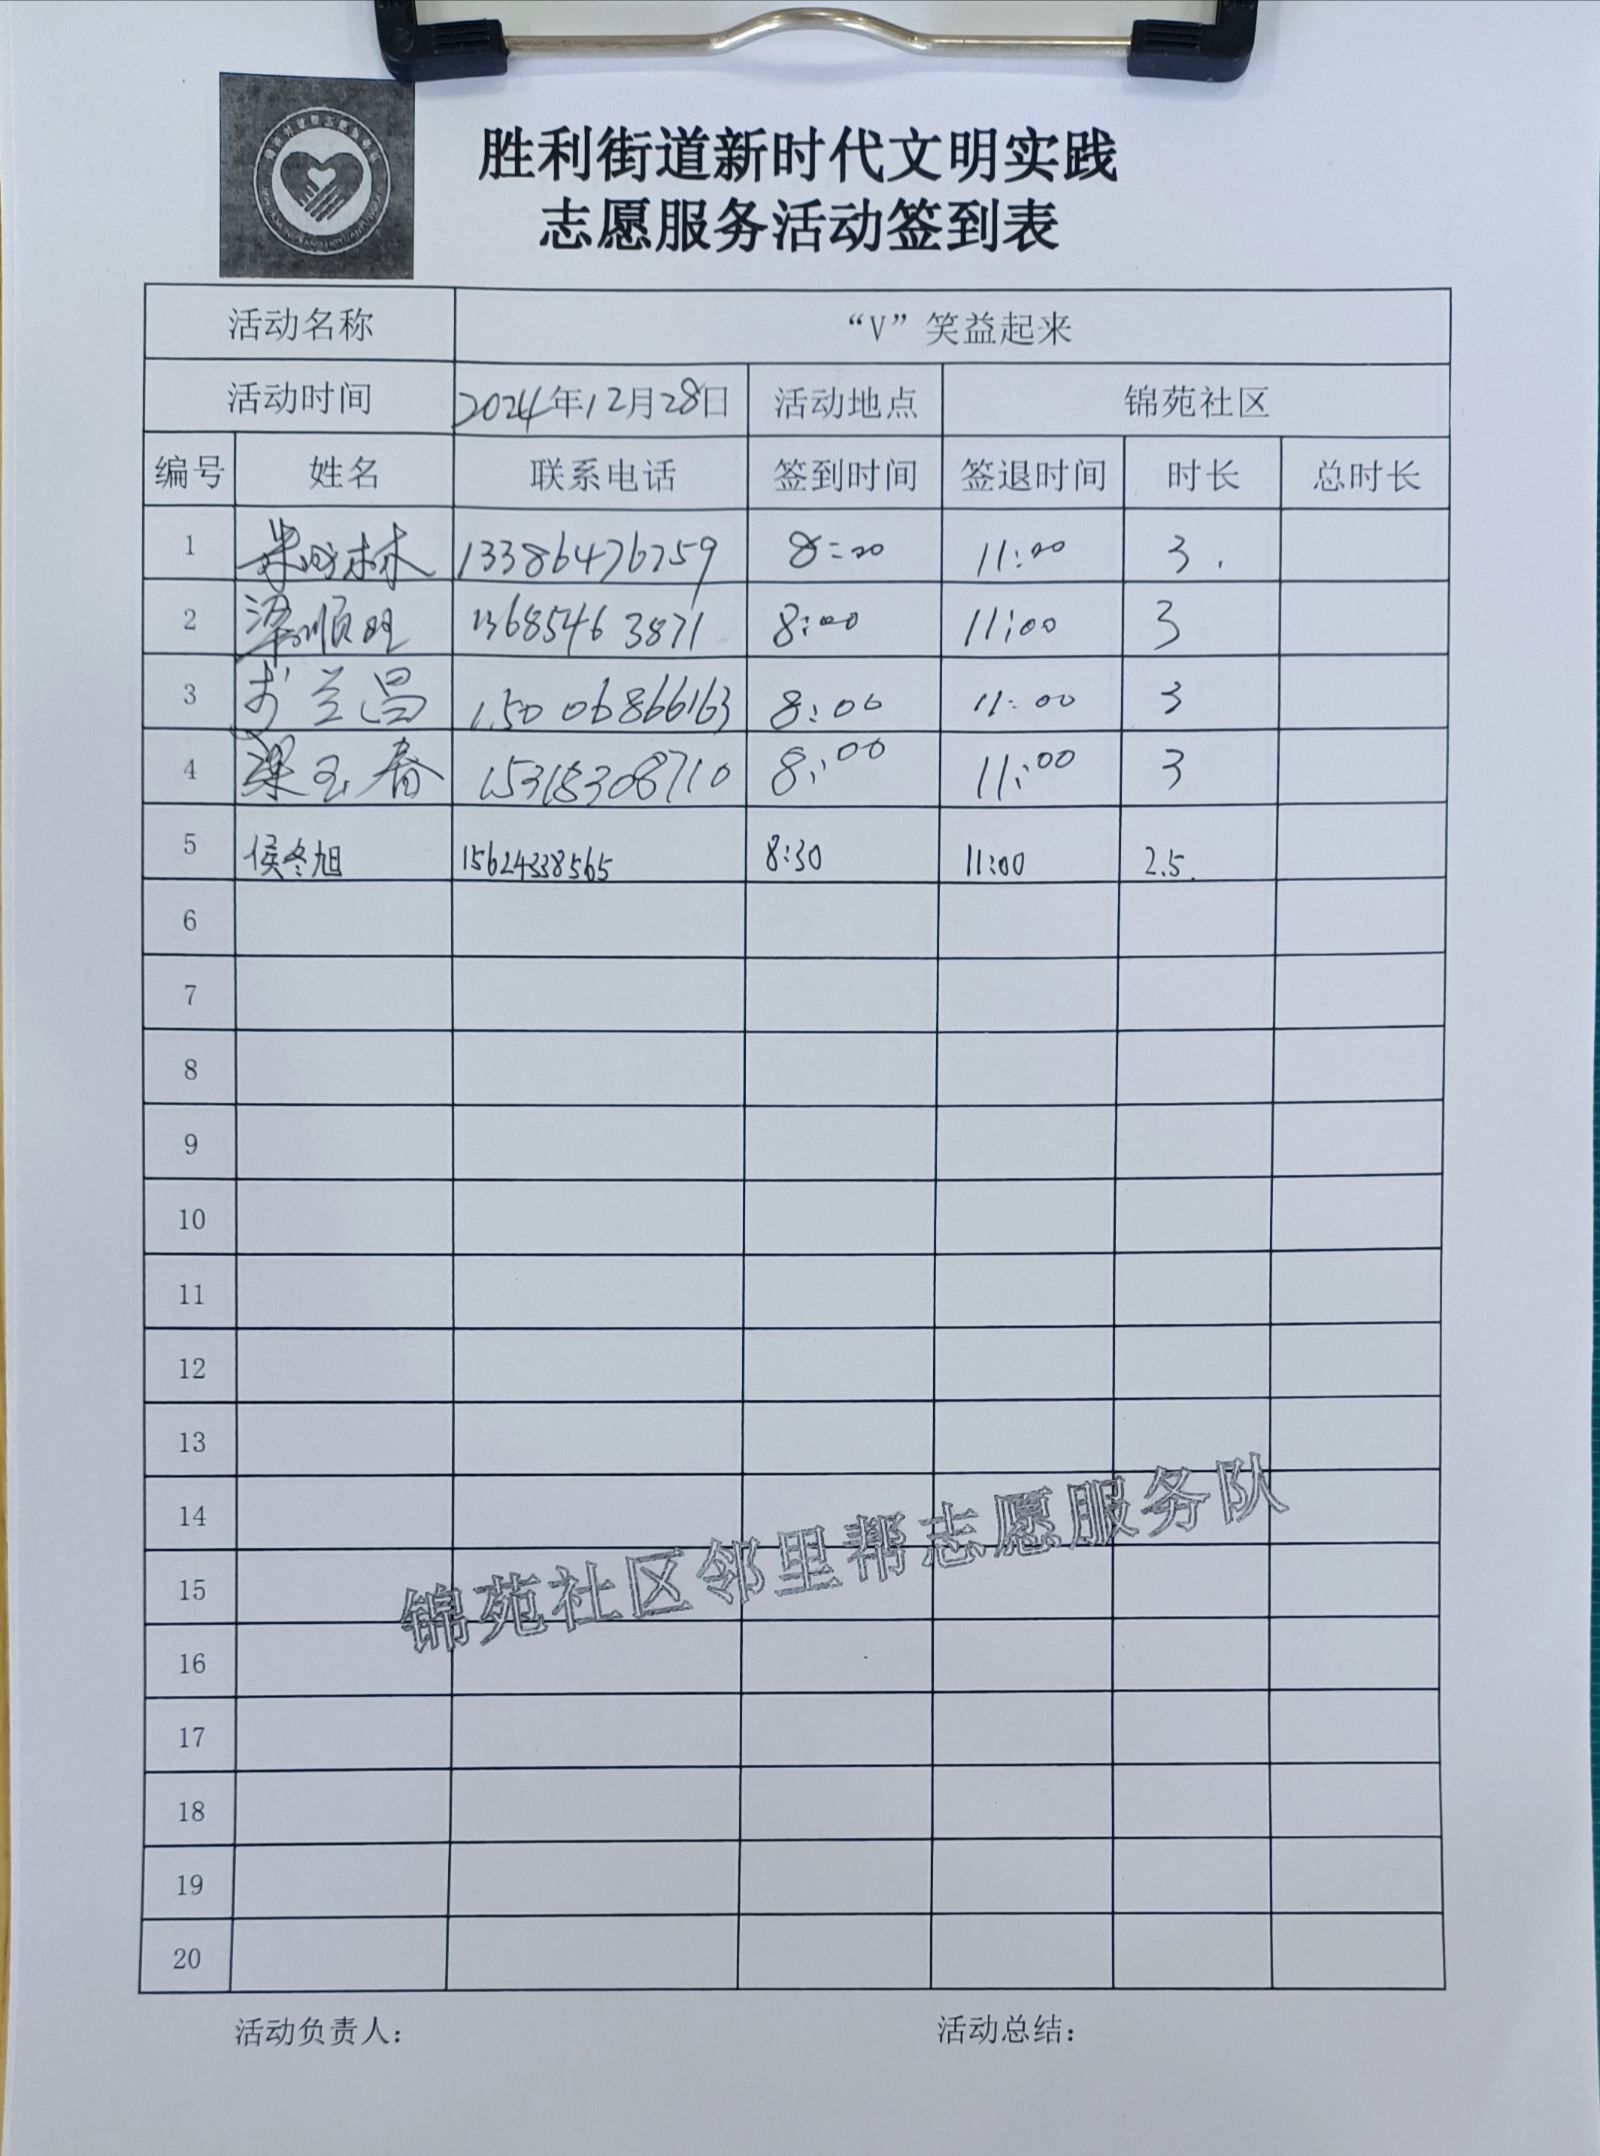 胜利街道新时代文明实践
志愿服务活动签到表
活动名称 “V”笑益起来
活动时间 2024年12月28日 活动地点 锦苑社区
编号 姓名 联系电话 签到时间 签退时间 时长 总时长
1 林 13386476759 8:00 11:00 3
2 梁顺旺 13685463871 8:00 11:00 3
3 兰昌 15006866163 8:00 11:00 3
4 梁玉春 15315308710 8:00 11:00 3
5 侯冬旭 15624338565 8:30 11:00 2.5
6
7
8
9
10
11
12
13
14
15
16
17
18
19
20
锦苑社区邻里帮志愿服务队
活动负责人： 活动总结：